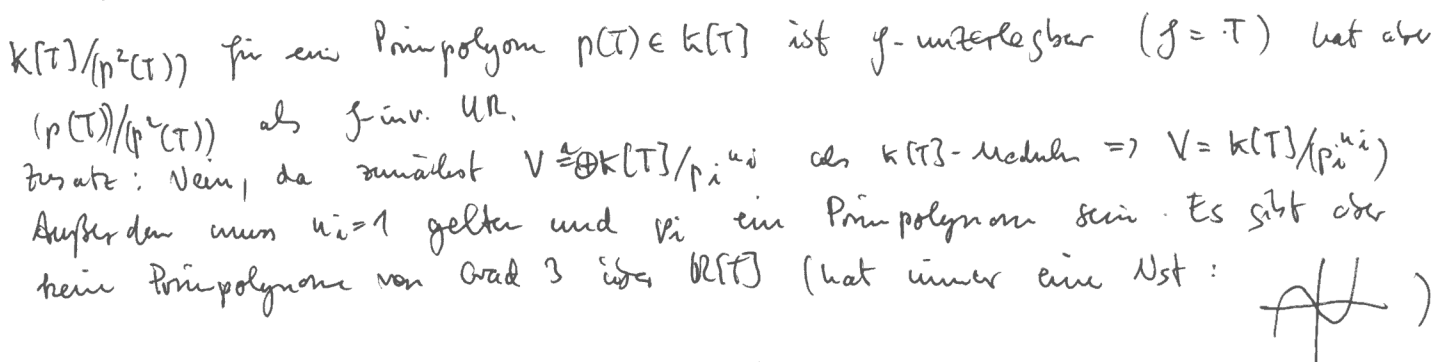 K[T]/(p²(T)) für ein Primpolynom p(T) ∈ k[T] ist f-unzerlegbar (f = ·T) hat aber
(p(T))/(p²(T)) als f-inv. UR.
Zusatz: Nein, da zunächst V ≅ ⊕K[T]/p_i^{n_i} als K[T]-Moduln => V = K[T]/(p_i^{n_i})
Außerdem muss n_i=1 gelten und p_i ein Primpolynom sein. Es gibt aber
kein Primpolynome von Grad 3 über R[T] (hat immer eine Nst: )